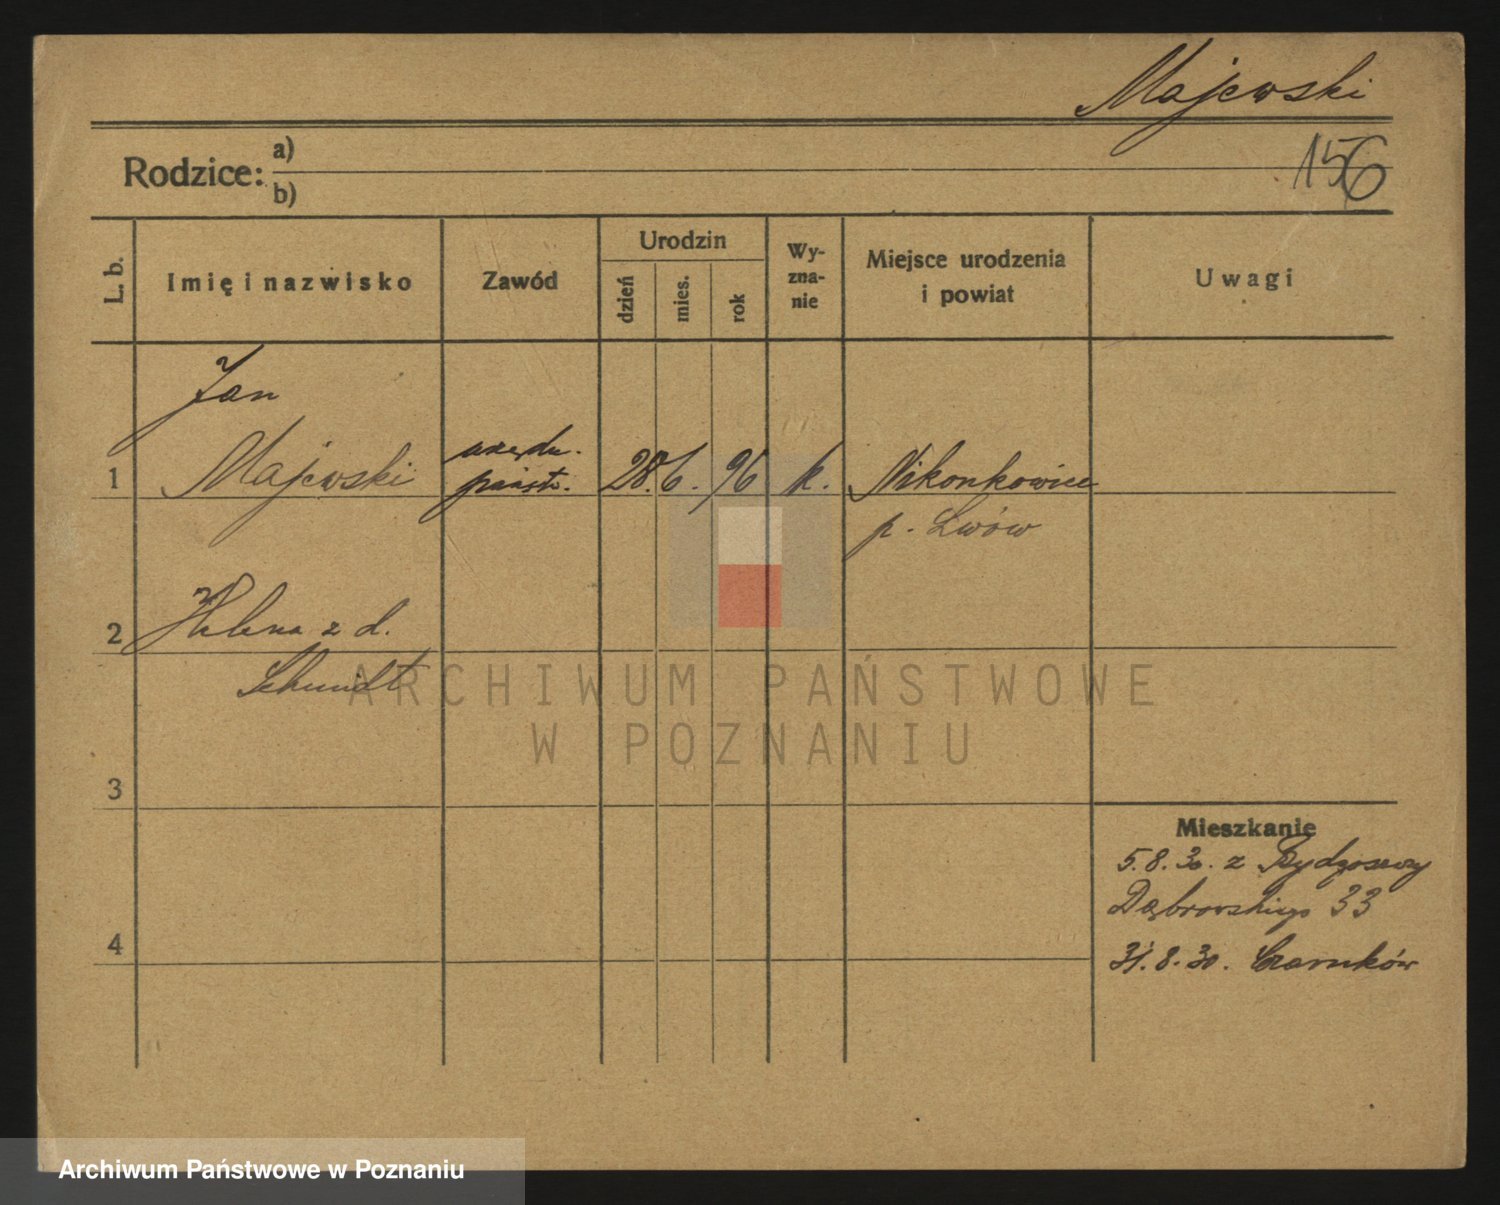 Majewski
156
Rodzice: a)
b)
L. b.
Imię i nazwisko
Zawód
Urodzin
dzień
mies.
rok
Wy-
zna-
nie
Miejsce urodzenia
i powiat
Uwagi
Jan
1 Majewski urzędn. 28. 6. 96 k. Nikonkowice
państw. p. Lwów
2 Helena z d.
Schmidt
3
4
Mieszkanie
5.8.30. z Bydgoszczy
Dąbrowskiego 33
31.8.30. Czarnków
ARCHIWUM PAŃSTWOWE
W POZNANIU
Archiwum Państwowe w Poznaniu